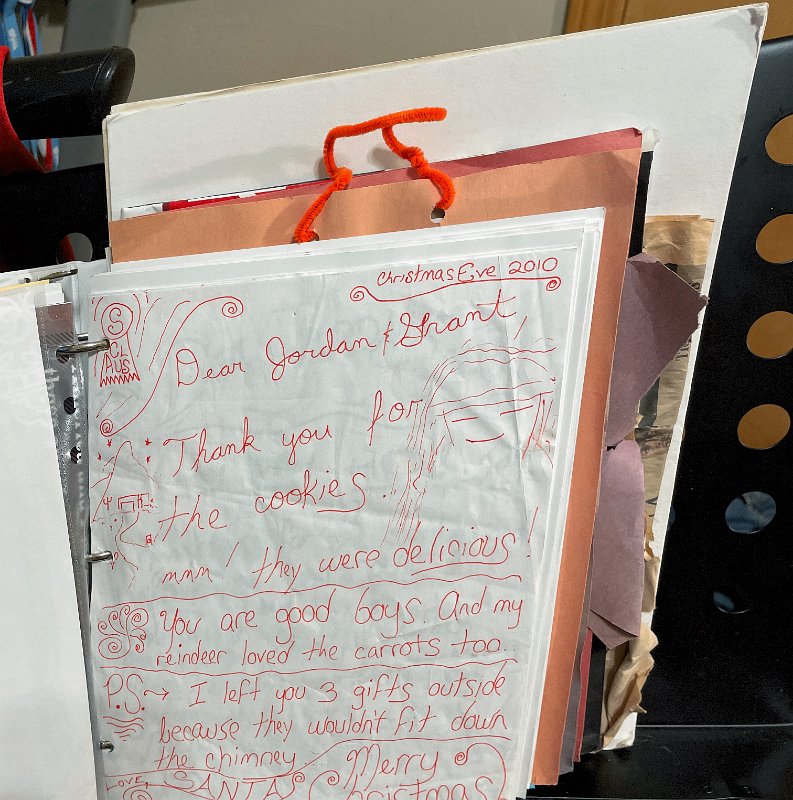 Christmas Eve 2010
S
CL
AUS
Dear Jordan & Grant,
Thank you for
the cookies.
mmm! they were delicious!
You are good boys. And my
reindeer loved the carrots too..
P.S.→ I left you 3 gifts outside
because they wouldn't fit down
the chimney. Merry
Christmas
LOVE, SANTA